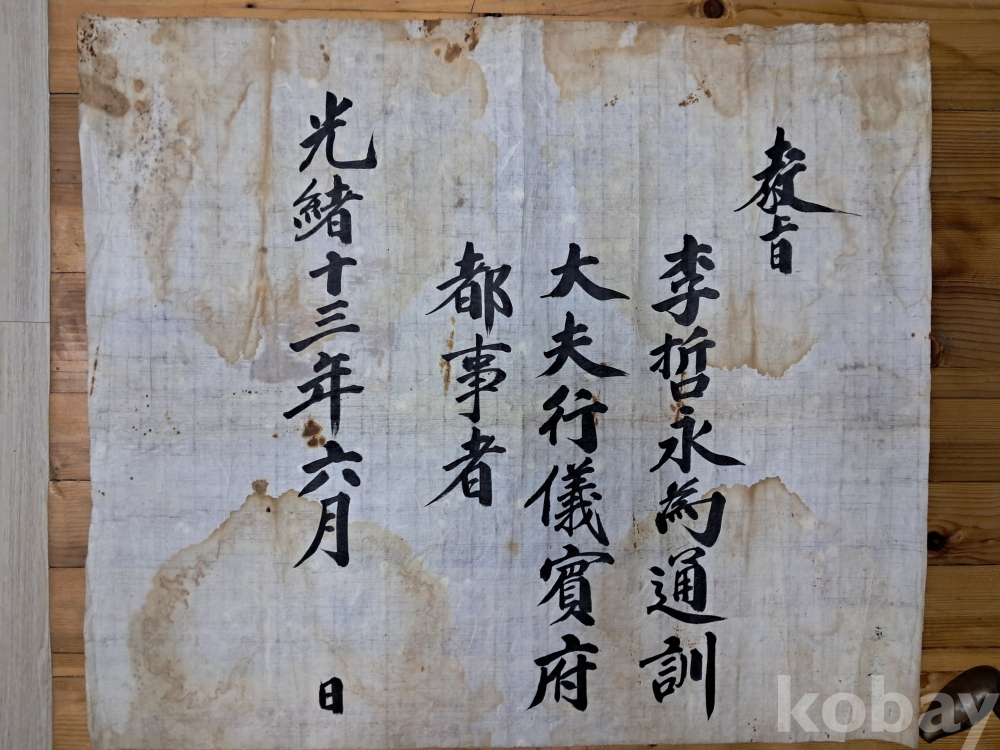 教旨
李哲永為通訓
大夫行儀賓府
都事者
光緖十三年六月 日
kobay